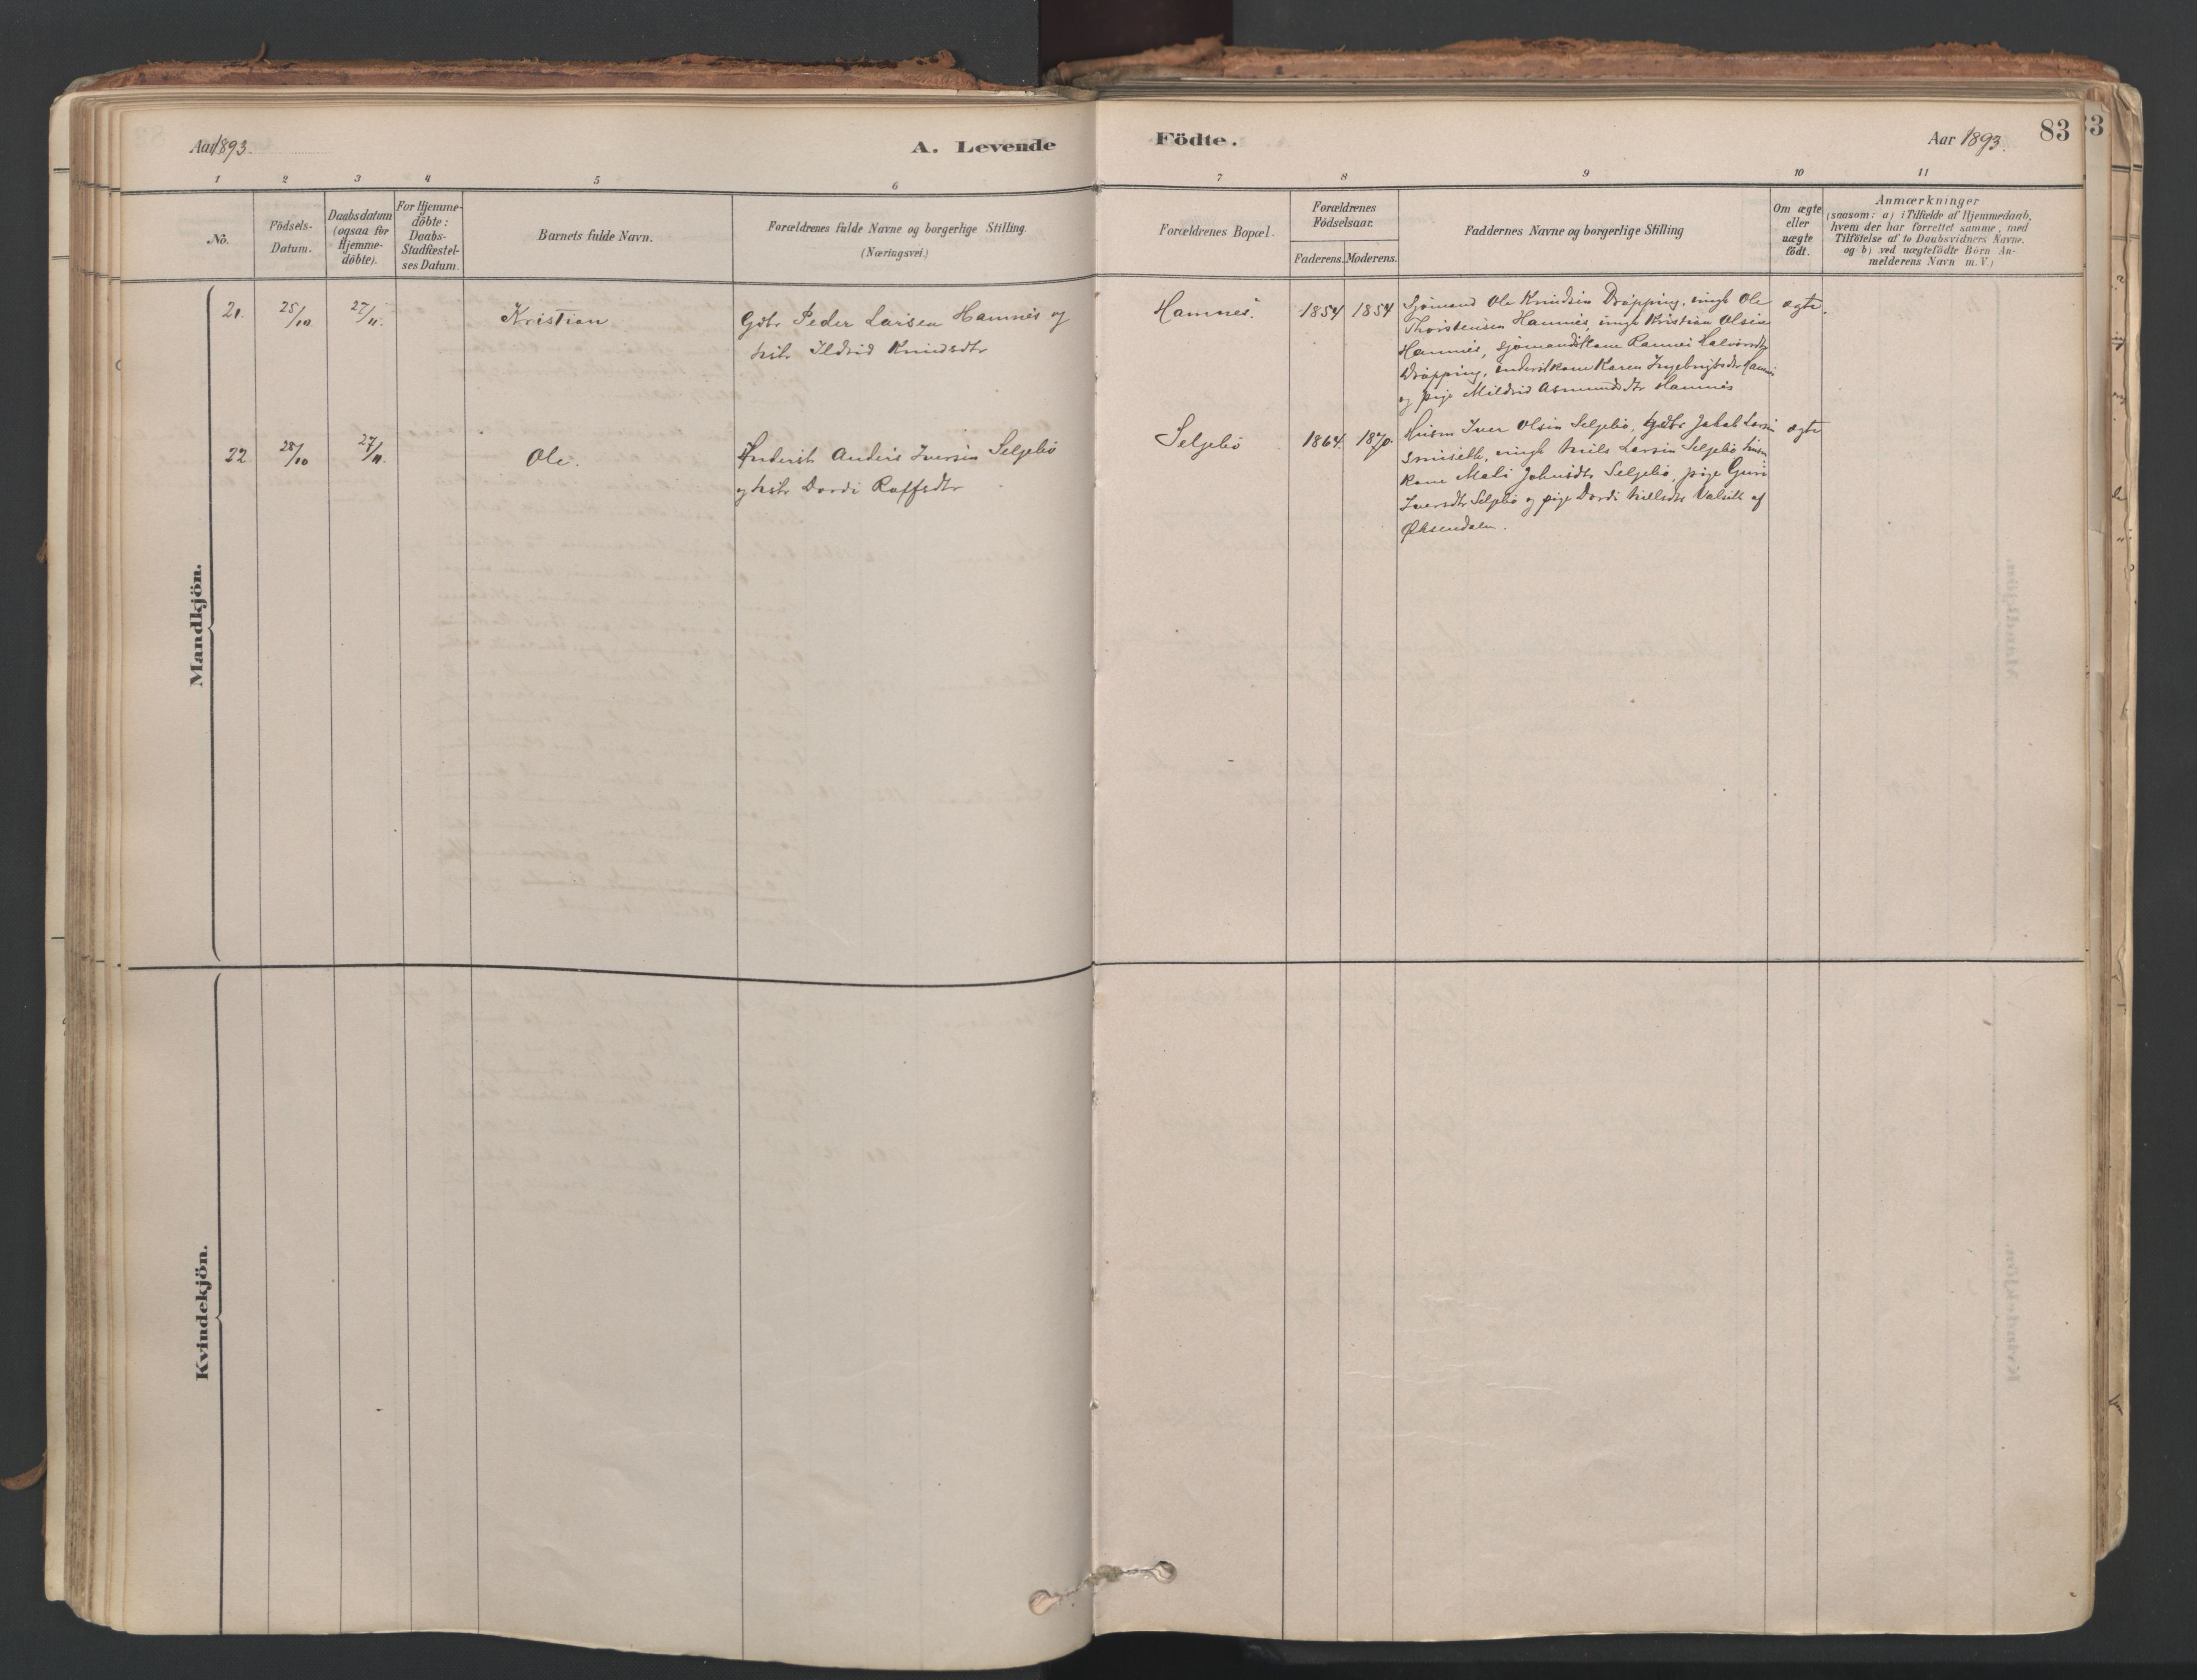 Aar 1893.
A. Levende
1 2 3 4 5 6
No.
Födsels-
Datum.
Daabsdatum
(ogsaa for
Hjemme-
döbte).
For Hjemme-
döbte:
Daabs-
Stadfæstel-
ses Datum.
Barnets fulde Navn.
Forældrenes fulde Navne og borgerlige Stilling.
(Næringsvei.)
Mandkjön.
21. 25/10 27/11. Kristian Gdbr Peder Larsen Hamnes og
hstr Ildrid Knudsdtr
22. 28/10 27/11. Ole. Inderst Anders Iversen Seljebö
og hstr Dordi Roffsdtr
Kvindekjön.
Födte.
Aar 1893.
83
83
7 8 9 10 11
Forældrenes Bopæl.
Forældrenes
Födselsaar.
Faderens. Moderens.
Faddernes Navne og borgerlige Stilling
Om ægte
eller
uægte
födt.
Anmærkninger
(saasom: a) i Tilfælde af Hjemmedaab,
hvem der har forrettet samme, med
Tilföielse af to Daabsvidners Navne,
og b) ved uægtefödte Börn An-
melderens Navn m. V.)
Hamnes. 1854 1854 Sjömand Ole Knudsen Dröpping, ungk Ole ægte.
Thorstensen Hamnes, ungk Kristian Olsen
Hamnes, Sjömandskone Halvorsdtr
Dröpping, inderstkone Karen Ingebrigtsdtr Hamnes
og pige Mildrid Asmundsdtr Hamnes
Seljebö 1864. 1870. Husm Iver Olsen Seljebö, Gdbr Jakob Larsen ægte
ungk Nils Larsen Seljebö, husm
kone Mali Johnsdtr Seljebö, pige Guri
Iversdtr Seljebö og pige Dordi Nilsdtr af
Öksendalen.